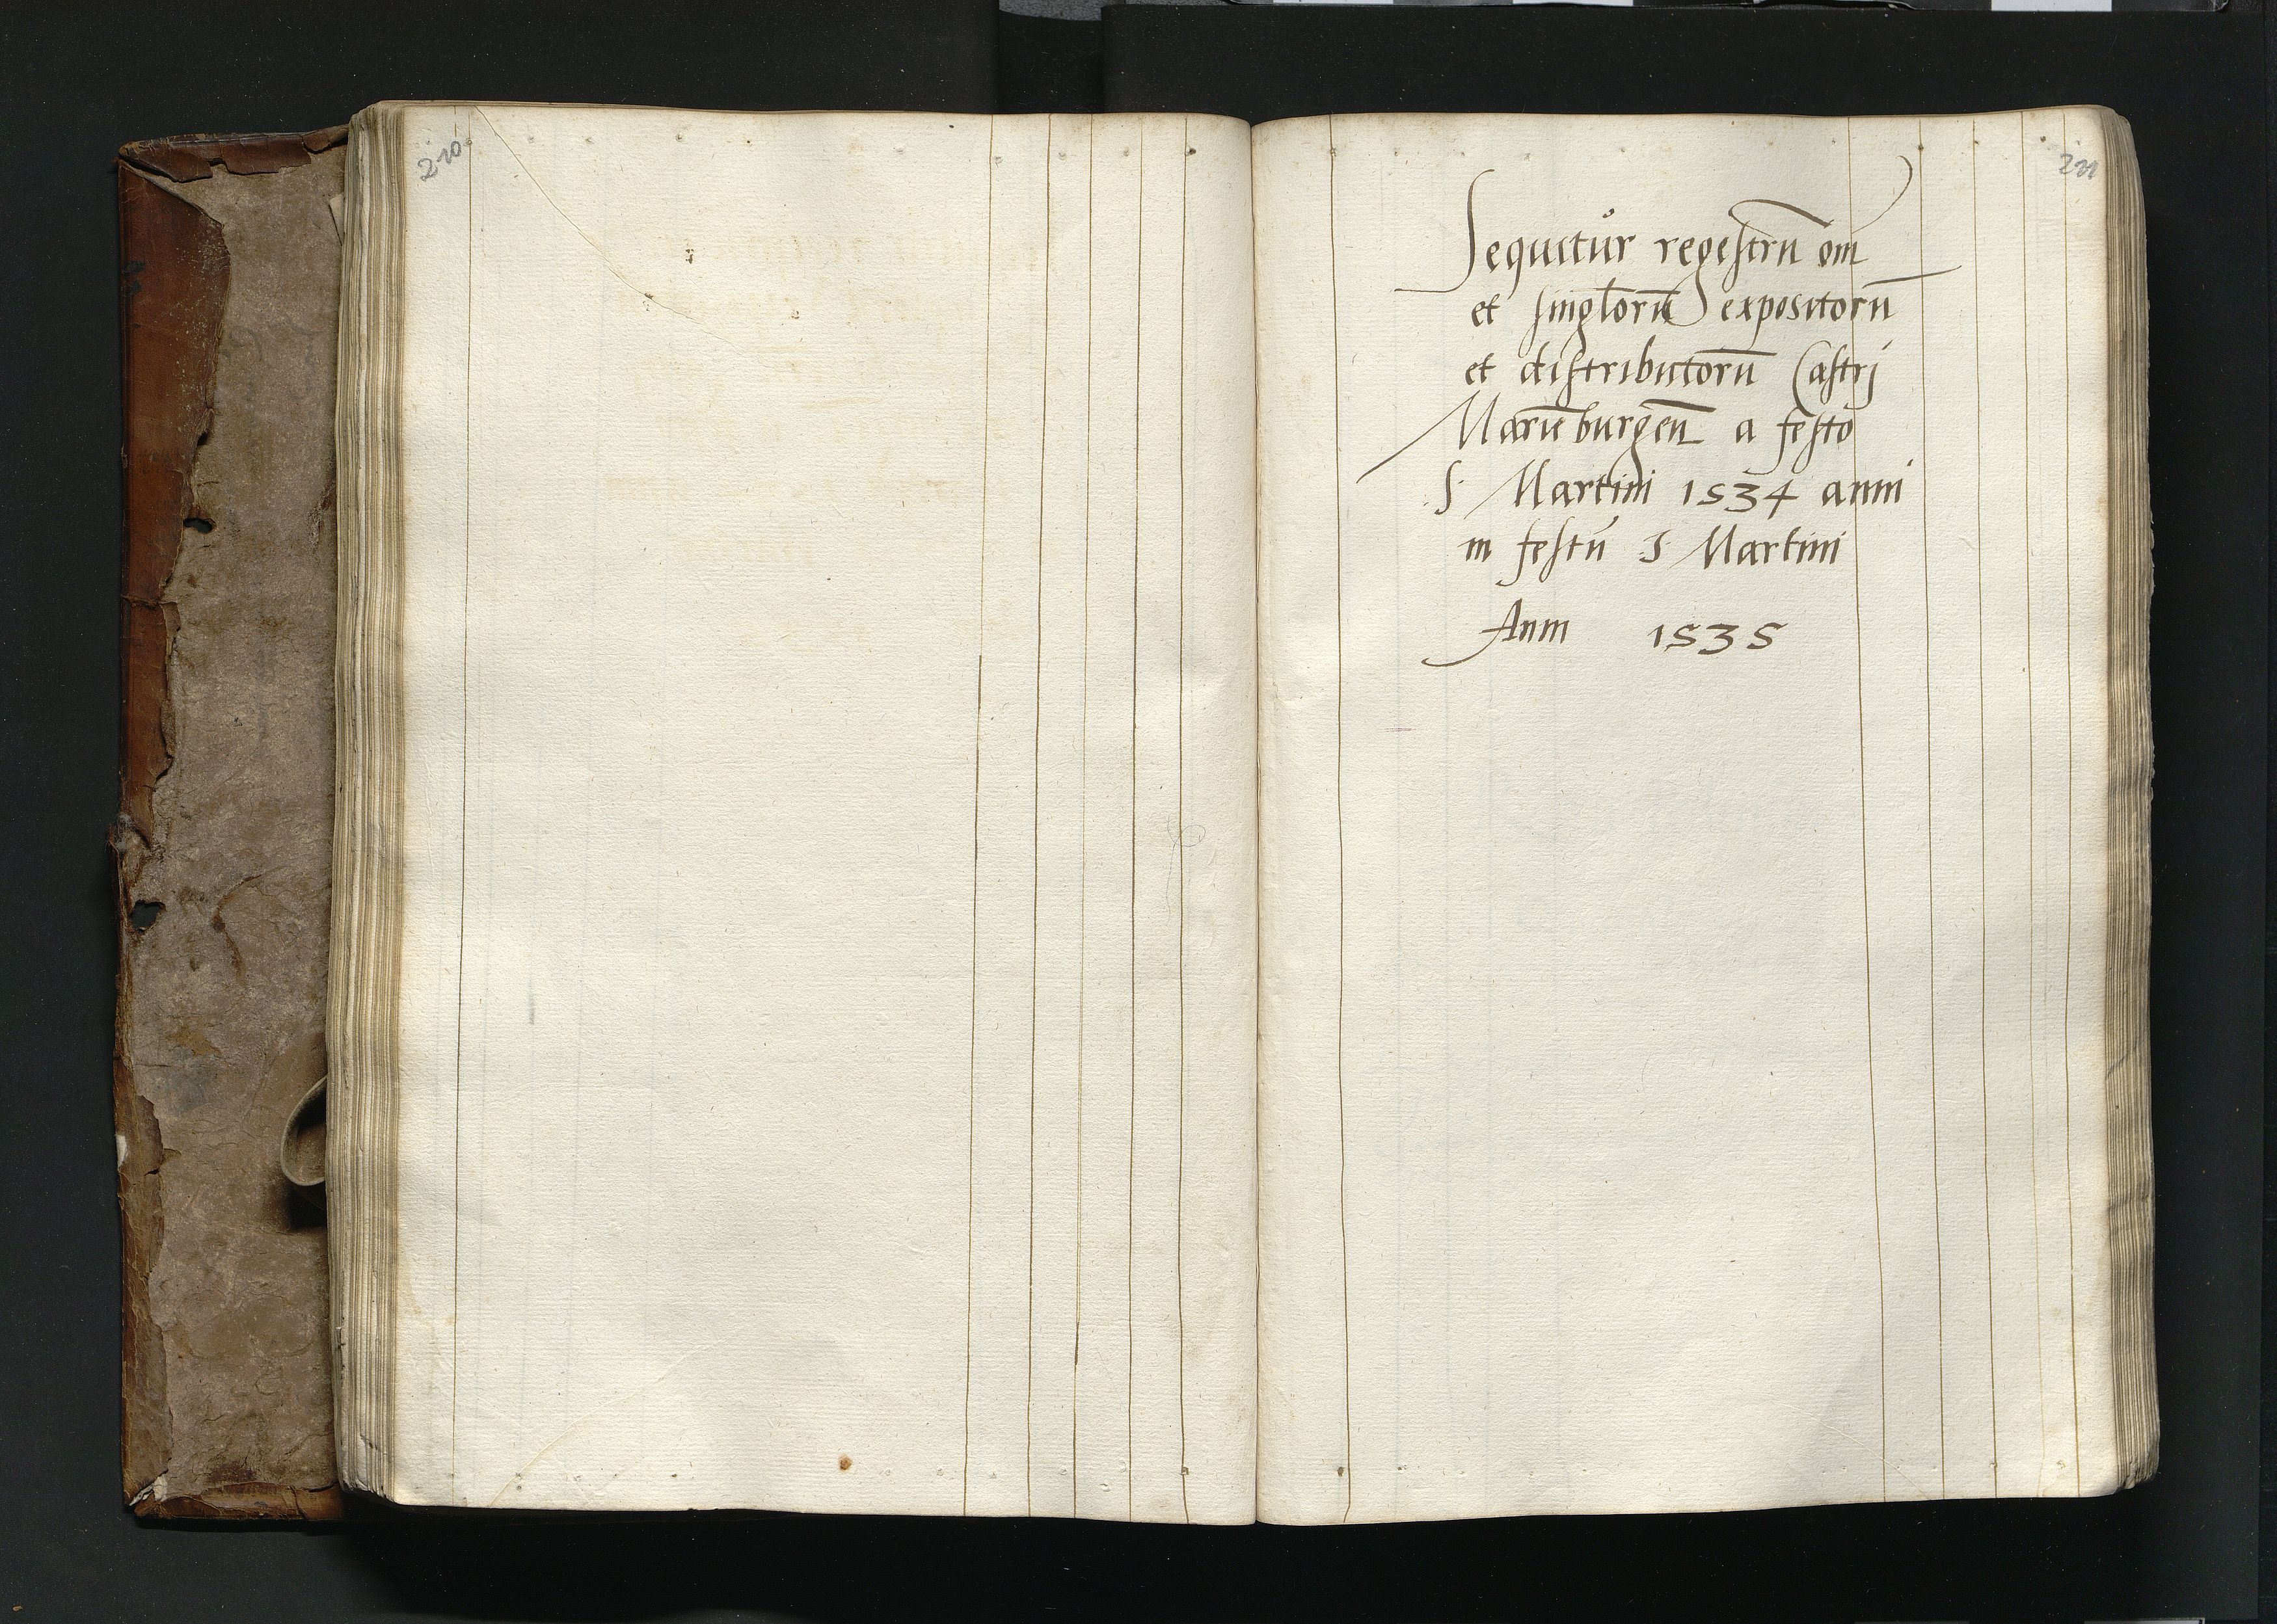 210
211
Sequitur regestrū om̄
et singlorū expositorū
et distributorū Castri
Mariēburgen̄ a festo
S Martini 1534 anni
in festū S Martini
Anni 1535